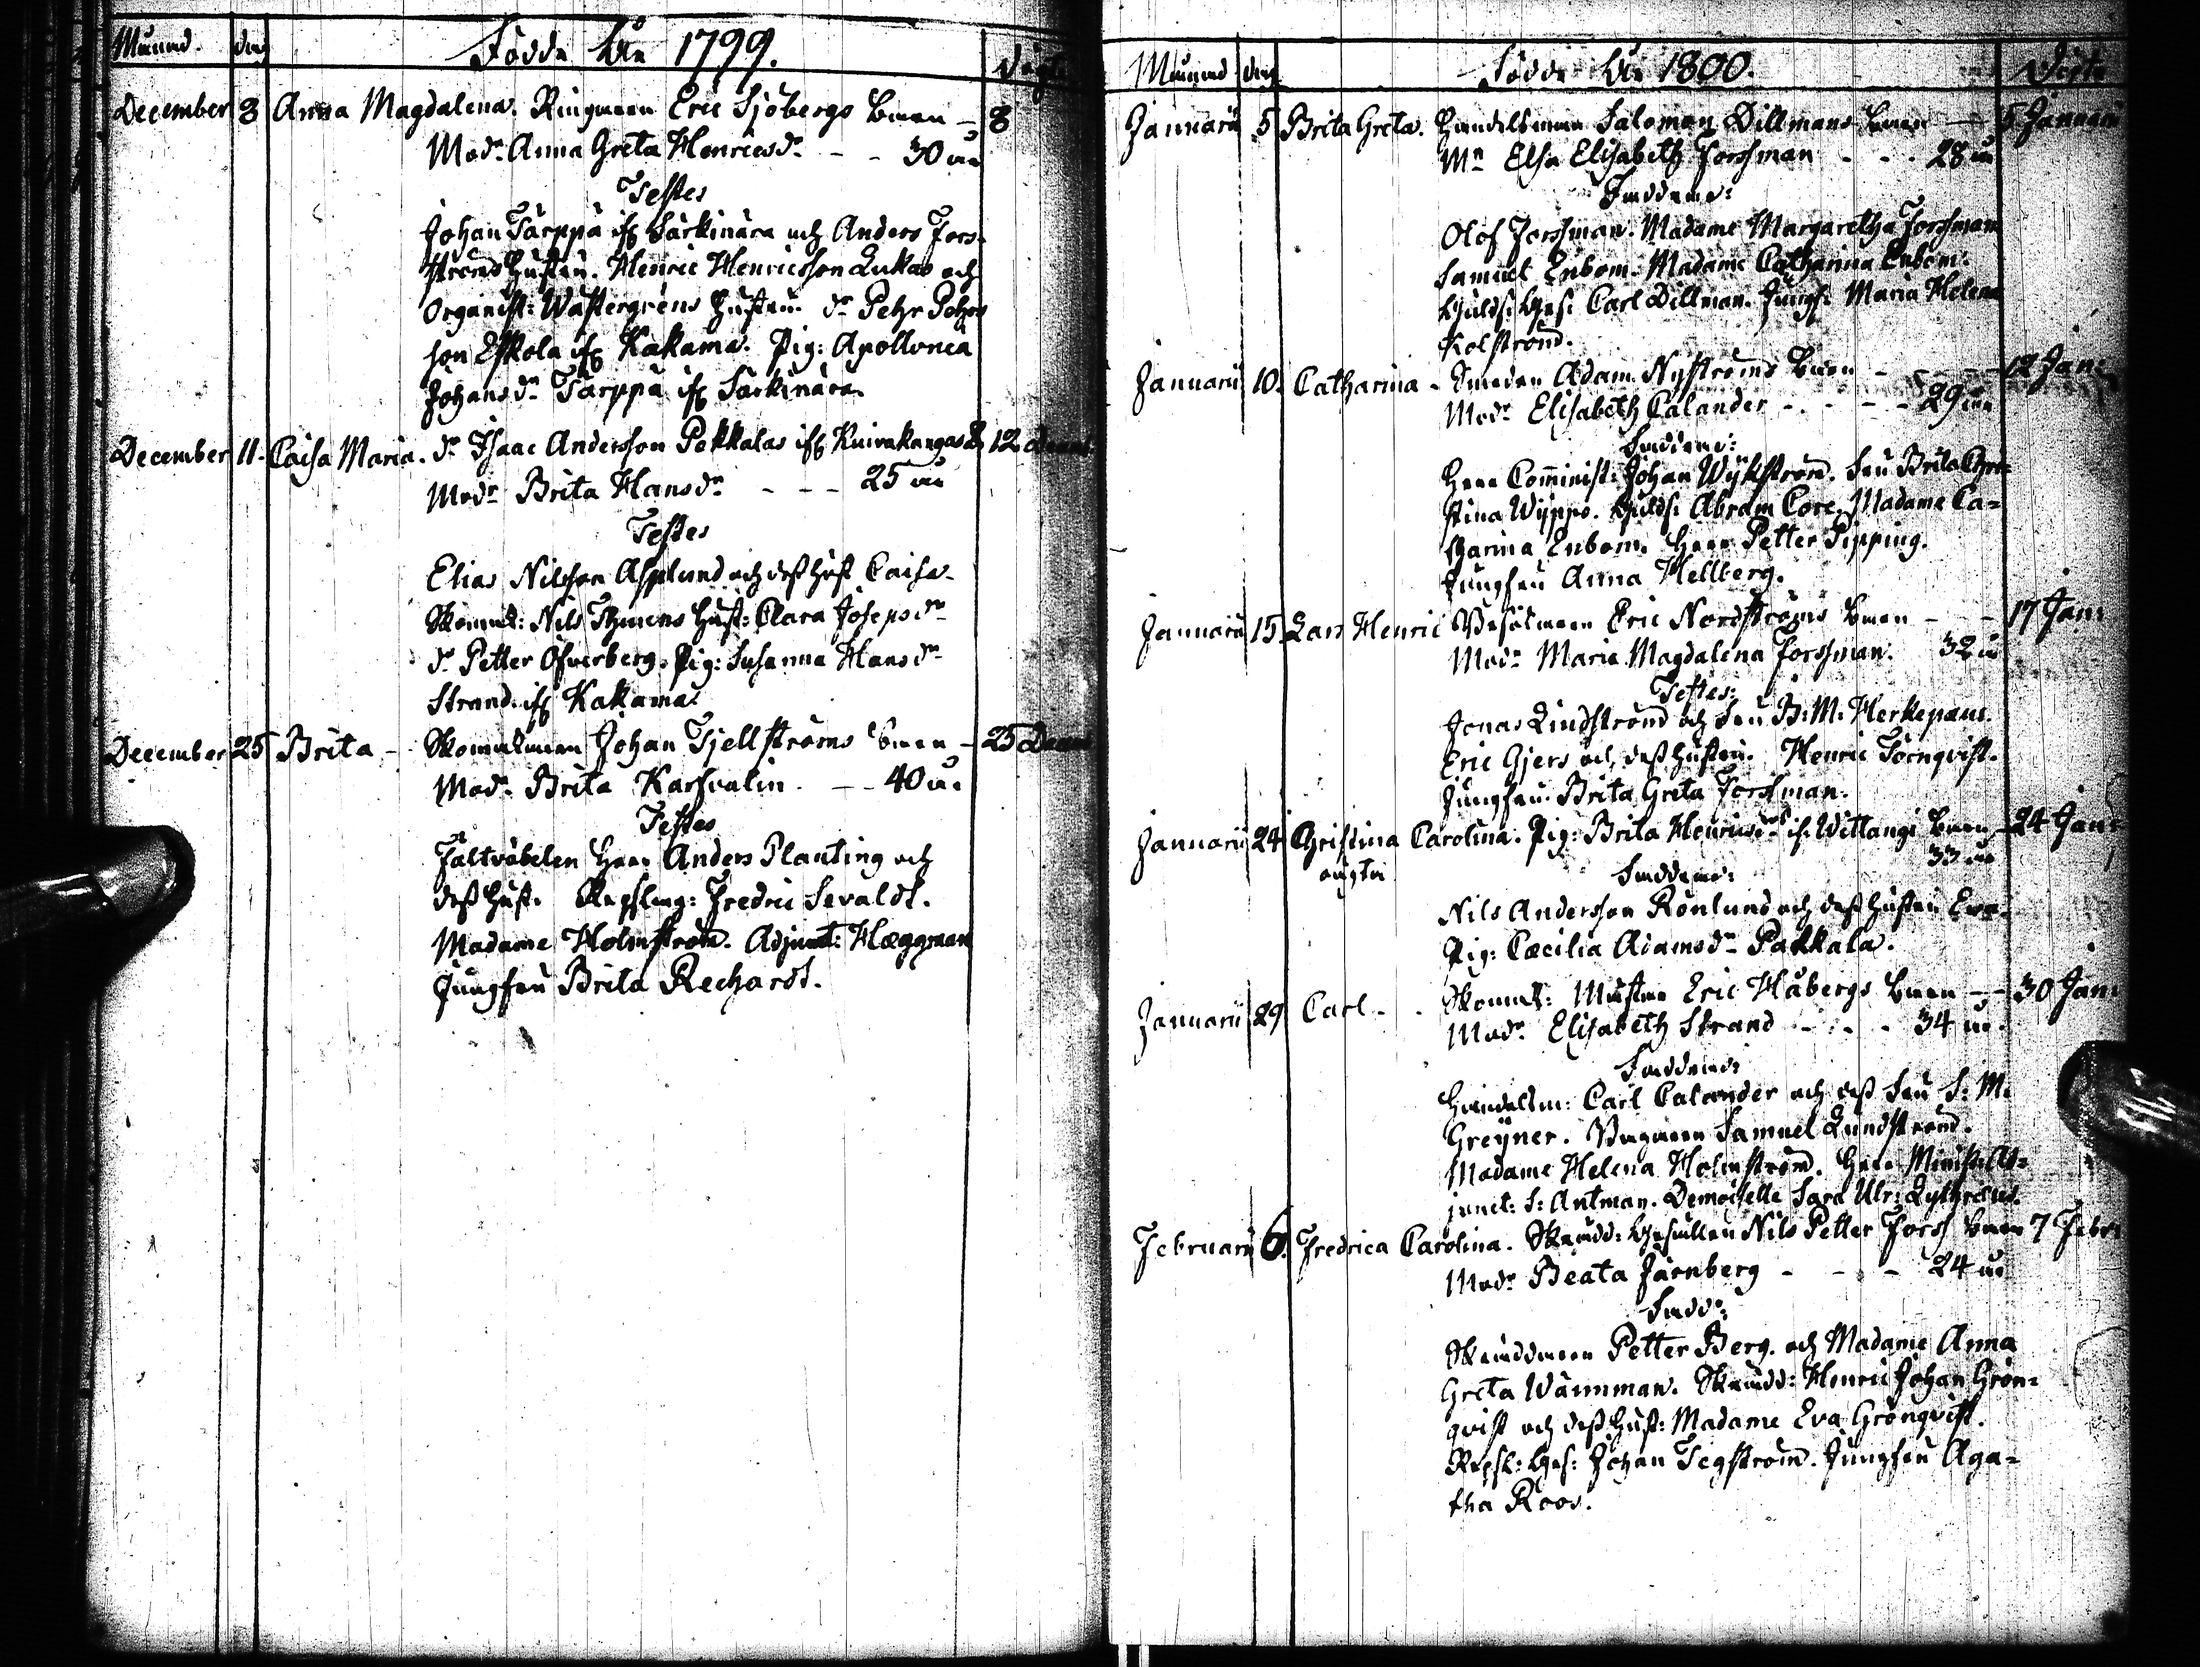 Månad. dag Födde År 1799. Döpte
December 8 Anna Magdalena. Ringaren Eric Sjöbergs barn - 8
Modr Anna Greta Henricsdr - - 30 år
Testes
Johan Tärppä if. Särkinära och Anders Fors-
ströms hustru. Henric Henricsson Lukas och
Organist: Wästergrens hustru. dr Pehr Pehrs
son Eskola if. Kakama. Pig: Apollonia
Johansdr Tärppä if. Särkinära.
December 11. Caisa Maria. dr Isaac Andersson Pekkalas if. Kuivakangas B. 12
Modr Brita Hansdr - - - 25 år
Testes
Elias Nilsson Asplund och dess hust Caisa.
Skomak: Nils Thurens hust: Clara Josepsdr
dr Petter Öfverberg. Pig: Susanna Hansdr
Strand if. Kakama.
December 25 Brita - Skomakaren Johan Tjellströms barn - 25 Decem
Modr Brita Karsvalin. - - 40 år.
Testes
Fältväbelen Herr Anders Planting och
dess hust. Repslag: Fredric Sevaldt.
Madame Holmström. Adjunct: Hæggman
Jungfru Brita Rechardt.
Månad dag Födde År 1800. Döpte
Januarii 5 Brita Greta. Handelsman Salomon Dillmans barn - 5 Januarii
Mr Elsa Elisabeth Forssman - - - 28 år
Faddrarne:
Olof Forssman. Madame Margaretha Forssman
Samuel Enbom. Madame Catharina Enbom.
Gulds: Ges: Carl Dillman. Jungf: Maria Helena
Kolström.
Januarii 10. Catharina - Smeden Adam Nyströms barn - - 12 Jan:
Modr Elisabeth Calander - - - - - 29 år
Faddrarne:
Herr Comminist: Johan Wijkström. Fru Brita Chri-
stina Wijppo. Gulds: Abram Core. Madame Ca=
tharina Enbom. Herr Petter Pipping.
Jungfru Anna Hellberg.
Januarii 15 Lars Henric Eric Nordströms barn - - 17 Jan:
Modr Maria Magdalena Forssman. 32 år
Testes:
Jonas Lindström och Fru B: M: Herkepæus.
Eric Gjers och dess hustru. Henric Törnqvist.
Jungfru Brita Greta Forssman.
Januarii 24 Christina Carolina. Pig: Brita Henricsdrs if. Wittangi barn - 24 Jan:
oägta 33 år
Faddrarne:
Nils Andersson Rönlund och dess hustru Eva.
Pig: Cæcilia Adamsdr Pakkala.
Januarii 29 Carl - - Skomak: Mästar Eric Håbergs barn - - 30 Jan:
Modr Elisabeth Strand - - - 34 år.
Faddrarne:
Handelsm: Carl Calander och dess Fru S: M:
Greijner. Samuel Lundström.
Madame Helena Holmström. Herr Minist: Ad=
junct: S: Antman. Demoiselle Sara Ulr: Lythræus.
Februarii 6. Fredrica Carolina. Skrädd: Gesällen Nils Petter Forss barn 7 Febr:
Modr Beata Järnberg - - - 24 år
Faddr:
Skräddaren Petter Berg. och Madame Anna
Greta Wännman. Skrädd: Henric Johan Grön=
qvist och dess hust: Madame Eva Grönqvist.
Repsl: Ges: Johan Tegström. Jungfru Aga=
tha Roos.